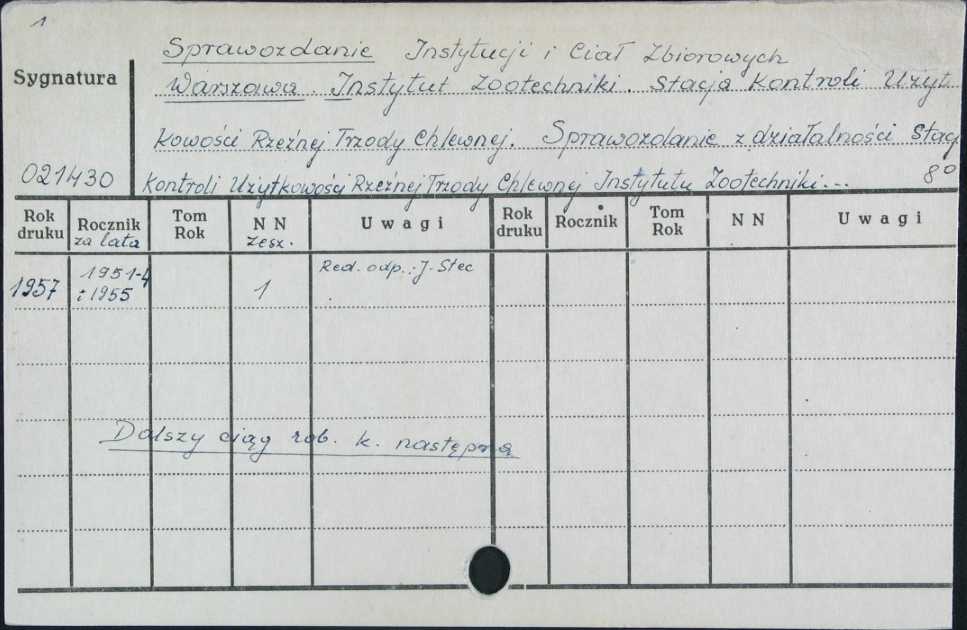 1
Sprawozdanie Instytucji i Ciał Zbiorowych
Sygnatura
Warszawa. Instytut Zootechniki. Stacja Kontroli Użyt
kowości Rzeźnej Trzody Chlewnej. Sprawozdanie z działalności Stacj
021430 Kontroli Użytkowości Rzeźnej Trzody Chlewnej Instytutu Zootechniki... 8°
Rok druku Rocznik za lata Tom Rok NN zesz. Uwagi Rok druku Rocznik Tom Rok NN Uwagi
1957 1951-4 i 1955 1 Red. odp.: J. Stec
Dalszy ciąg rob. k. następna